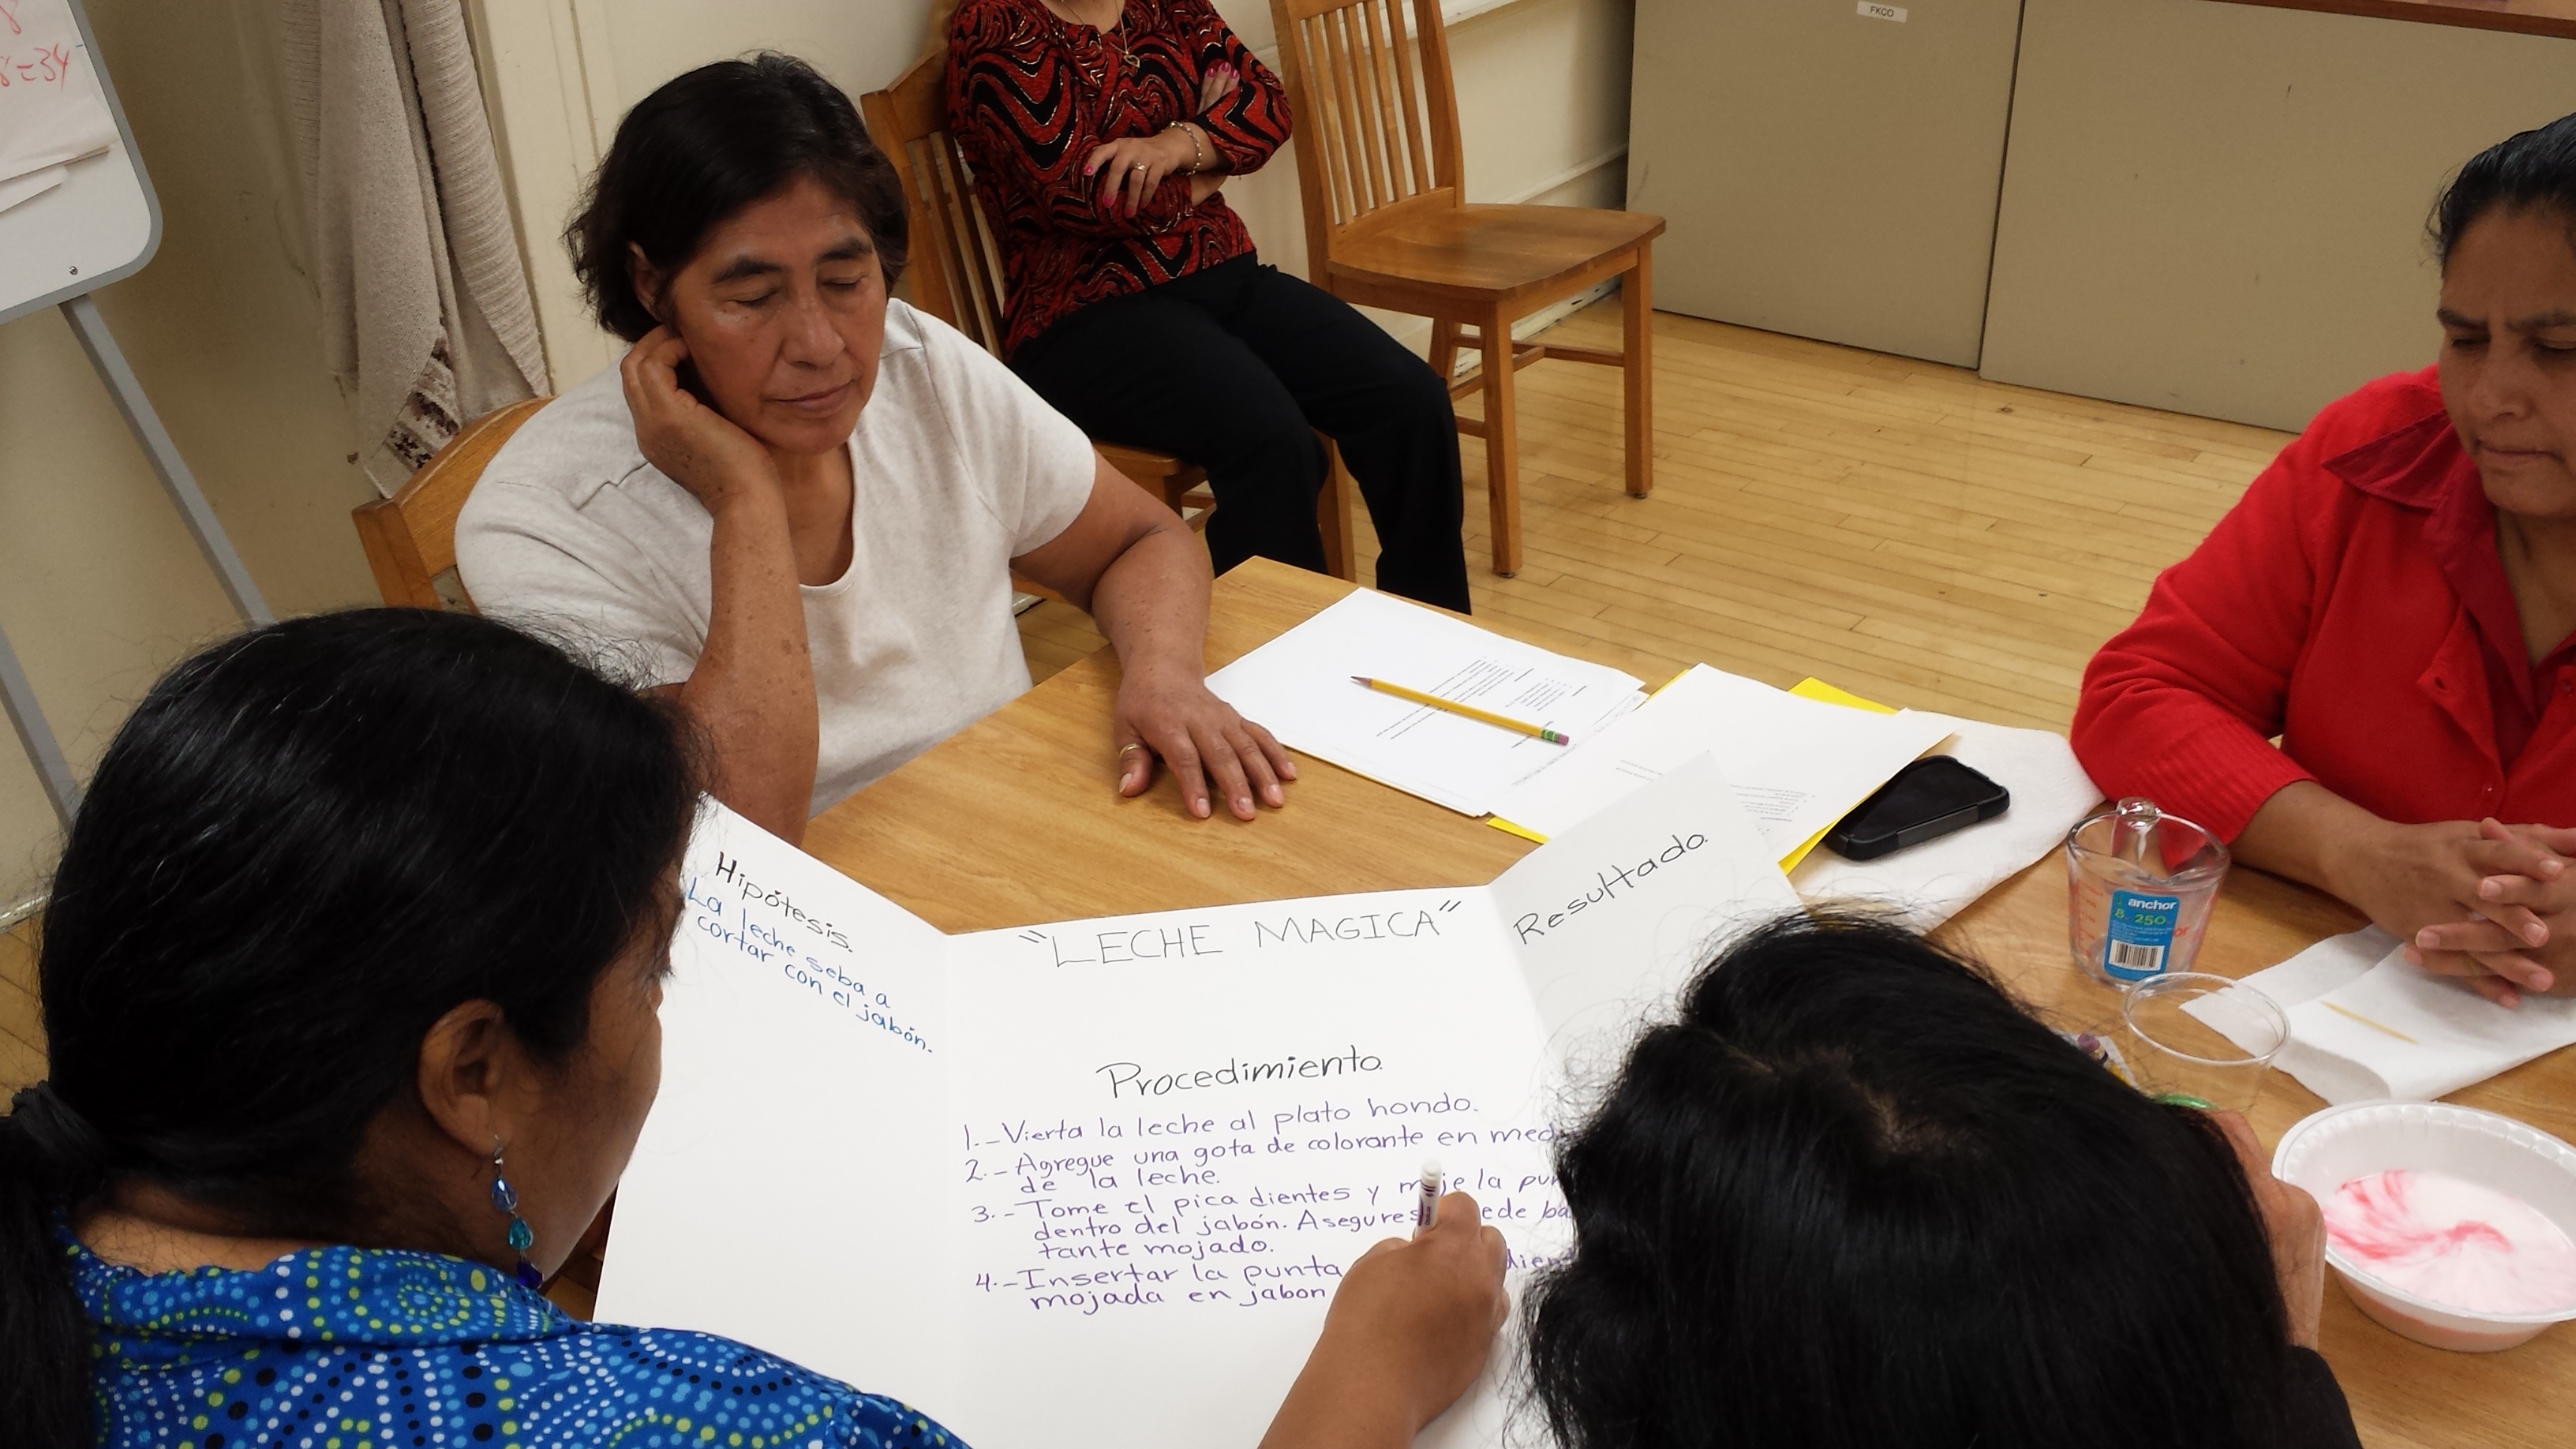 8
8=34
FKCO
Hipótesis.
La leche seba a
cortar con el jabón.
"LECHE MAGICA"
Procedimiento.
1.-Vierta la leche al plato hondo.
2.-Agregue una gota de colorante en med
de la leche.
3.-Tome el pica dientes y moje la pun
dentro del jabón. Asegures ede ba
tante mojado.
4.-Insertar la punta dien
mojada en jabon
Resultado.
anchor
8 250